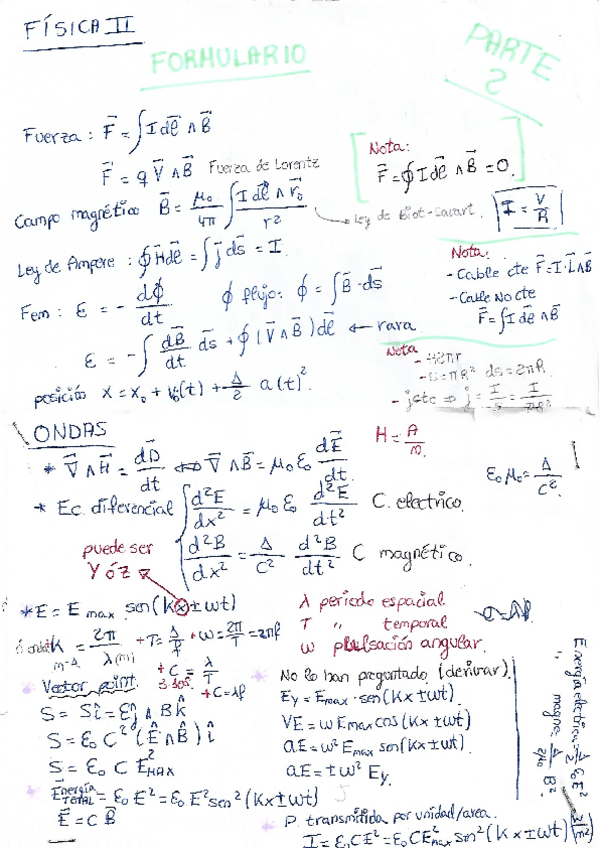 FÍSICA II
FORMULARIO
PARTE 2
Fuerza: F⃗ = ∫ I dℓ⃗ ∧ B⃗
F⃗ = q V⃗ ∧ B⃗ Fuerza de Lorentz
Nota:
F⃗ = ∮ I dℓ⃗ ∧ B⃗ = 0.
Campo magnético B⃗ = μ₀/4π ∫ I dℓ⃗ ∧ r⃗₀ / r²
Ley de Biot-Savart.
I = V/R
Ley de Ampere: ∮ H⃗ dℓ⃗ = ∫ j⃗ ds⃗ = I
Nota:
- Cable cte F⃗ = I · L⃗ ∧ B⃗
- Cable No cte
F⃗ = ∫ I dℓ⃗ ∧ B⃗
Fem: ε = - dϕ/dt ϕ flujo: ϕ = ∫ B⃗ · ds⃗
ε = - ∫ dB⃗/dt ds⃗ + ∮ (V⃗ ∧ B⃗) dℓ⃗ ← rara
Nota
- s = πR² ds = 2πR
- j cte ⇒ j = I/s = I/πR²
posición x = x₀ + v₀(t) + 1/2 a(t)².
ONDAS
H = A/m.
* ∇⃗ ∧ H⃗ = dD⃗/dt ⇔ ∇⃗ ∧ B⃗ = μ₀ ε₀ dE⃗/dt
ε₀ μ₀ = 1/c².
* Ec. diferencial d²E/dx² = μ₀ ε₀ d²E/dt² C. electrico.
d²B/dx² = 1/c² d²B/dt² C magnético.
puede ser
Y ó Z
* E = E max sen(Kx ± ωt)
λ periodo espacial
T " temporal
ω pulsación angular.
K = 2π/λ(m) + T = 1/f + ω = 2π/T = 2πf
m⁻¹
+ C = λ/T
3·10⁸ + C = λf
* Vector point.
S = Sî = Eĵ ∧ Bk̂
S = ε₀ C² (Ê ∧ B̂) î
S = ε₀ C E²MAX
No lo han preguntado (derivar).
Ey = Emax · sen(Kx ± ωt)
VE = ω Emax cos(Kx ± ωt)
aE = ω² Emax sen(Kx ± ωt)
aE = ± ω² Ey.
Energía electrica = 1/2 ε₀ E²
" magne. 1/2μ₀ B².
* Energía TOTAL = ε₀ E² = ε₀ E² sen²(Kx ± ωt)
E⃗ = C B⃗
* P. transmitida por unidad/area.
I = ε₀CE² = ε₀CE²max sen²(Kx ± ωt)